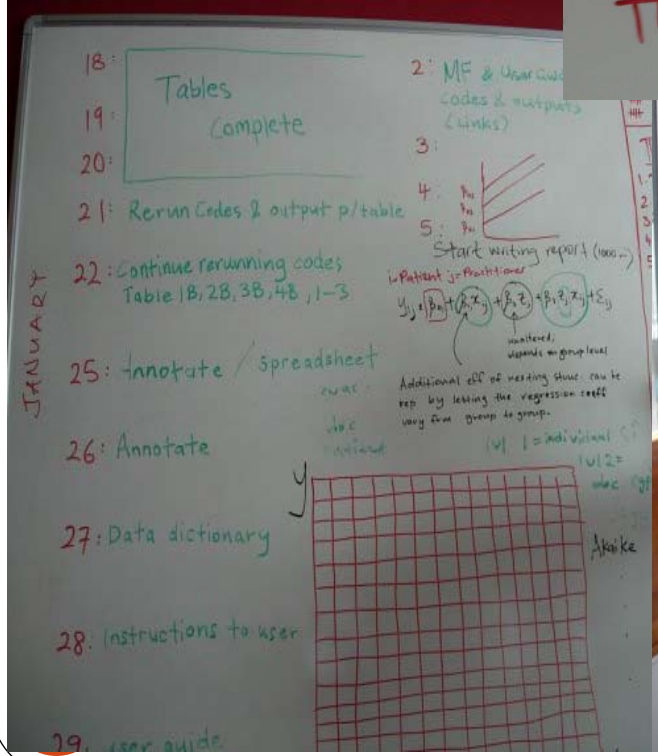 JANUARY
18:
19:
20:
Tables
Complete
21: Rerun Codes & output p/table
22: Continue rerunning codes
Table 1B, 2B, 3B, 4B, 1-3
25: Annotate / spreadsheet
26: Annotate
27: Data dictionary
28: Instructions to user
29. user guide
2: MF & User
codes & outputs
(Links)
3:
4:
5:
Start writing report
i=Patient j=Practitioner
depends on group level
Additional eff of nesting struc. can be
rep by letting the regression coeff
vary from group to group.
lvl 1 = individual
lvl 2 =
y
Akaike